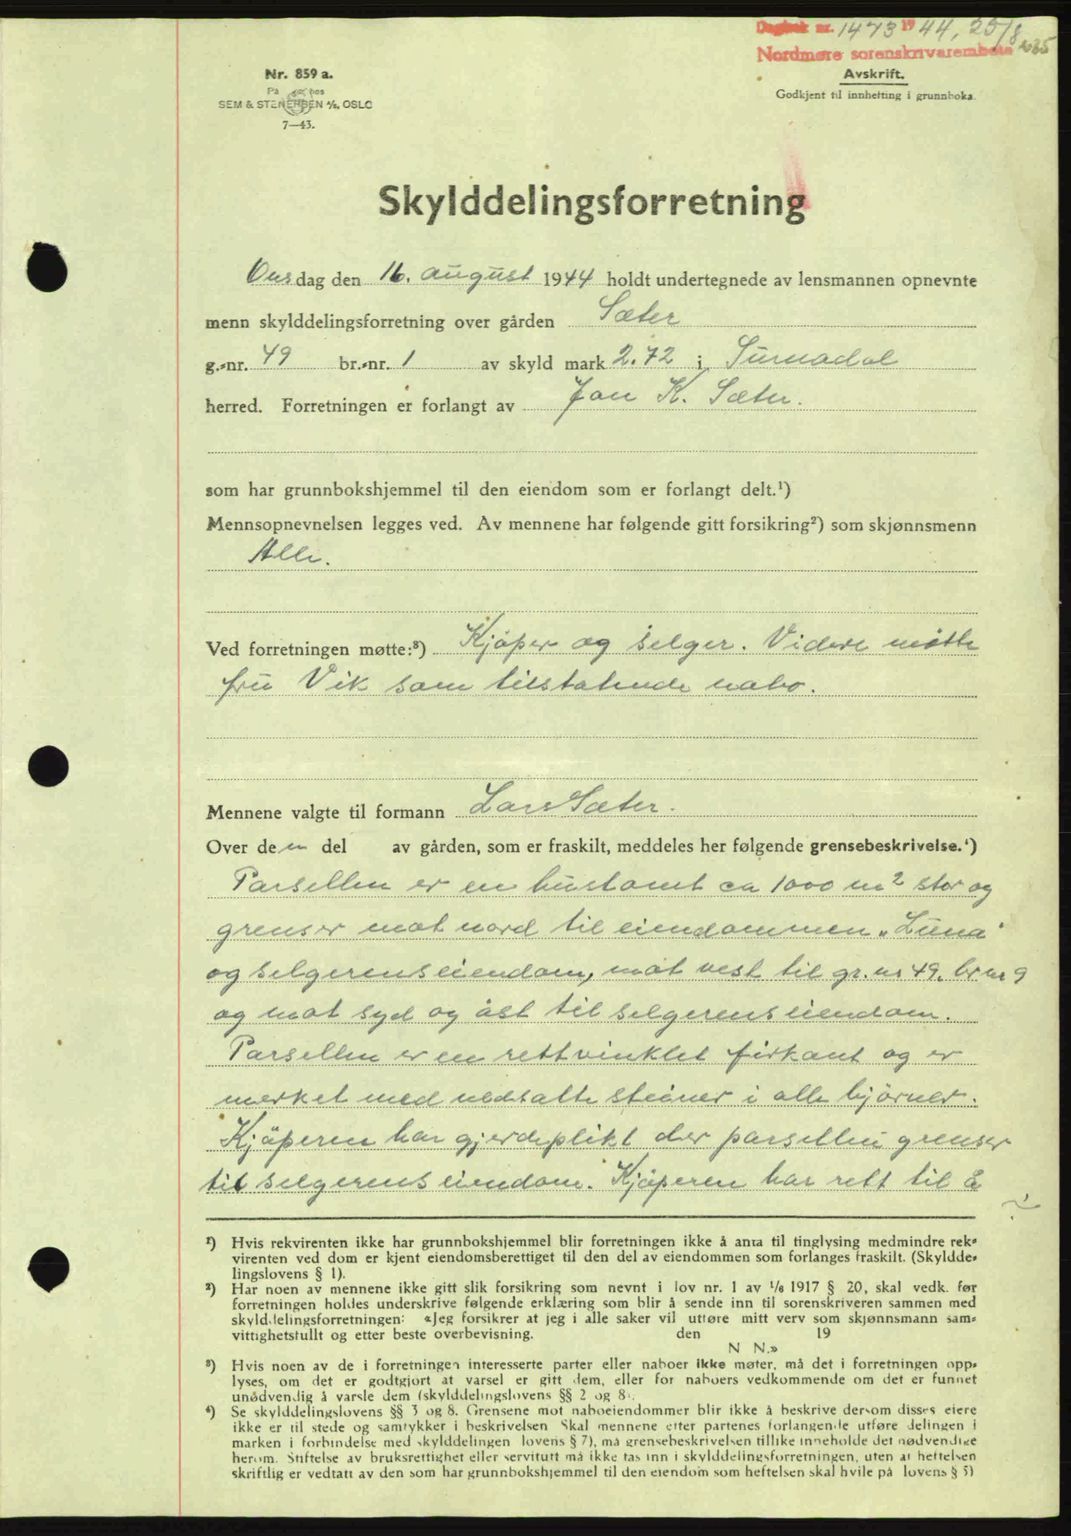 Dagbok nr. 1473 1944, 25/8
Nordmøre sorenskrivarembete
Nr. 859 a.
På hos
SEM & STENERSEN A/S, OSLO
7—43.
Avskrift.
Godkjent til innhefting i grunnboka.
Skylddelingsforretning
Onsdag den 16. august 1944 holdt undertegnede av lensmannen opnevnte
menn skylddelingsforretning over gården Sæter
g.-nr. 49 br.-nr. 1 av skyld mark 2.72 i Surnadal
herred. Forretningen er forlangt av Jon K. Sæter.
som har grunnbokshjemmel til den eiendom som er forlangt delt.¹)
Mennsopnevnelsen legges ved. Av mennene har følgende gitt forsikring²) som skjønnsmenn
Alle.
Ved forretningen møtte:³) Kjøper og selger. Videre møtte
fru Vik som tilstøtende nabo.
Mennene valgte til formann Lars Sæter.
Over den del av gården, som er fraskilt, meddeles her følgende grensebeskrivelse.⁴)
Parsellen er en hustomt ca 1000 m² stor og
grenser mot nord til eiendommen "Luna"
og selgerens eiendom, mot vest til gr. nr 49. br nr 9
og mot syd og øst til selgerens eiendom.
Parsellen er en rettvinklet firkant og er
merket med nedsatte steiner i alle hjørner.
Kjøperen har gjerdeplikt der parsellen grenser
til selgerens eiendom. Kjøperen har rett til å
¹) Hvis rekvirenten ikke har grunnbokshjemmel blir forretningen ikke å anta til tinglysing medmindre rek-
virenten ved dom er kjent eiendomsberettiget til den del av eiendommen som forlanges fraskilt. (Skyldde-
lingslovens § 1).
²) Har noen av mennene ikke gitt slik forsikring som nevnt i lov nr. 1 av 1/6 1917 § 20, skal vedk. før
forretningen holdes underskrive følgende erklæring som blir å sende inn til sorenskriveren sammen med
skylddelingsforretningen: «Jeg forsikrer at jeg i alle saker vil utføre mitt verv som skjønnsmann sam-
vittighetsfullt og etter beste overbevisning. den 19
N. N.»
³) Hvis noen av de i forretningen interesserte parter eller naboer ikke møter, må det i forretningen opp-
lyses, om det er godtgjort at varsel er gitt dem, eller for naboers vedkommende om det er funnet
unødvendig å varsle dem (skylddelingslovens §§ 2 og 8).
⁴) Se skylddelingslovens §§ 3 og 8. Grensene mot naboeiendommer blir ikke å beskrive dersom disses eiere
ikke er til stede og samtykker i beskrivelsen. Skal mennene etter partenes forlangende utføre delingen i
marken i forbindelse med skylddelingen (lovens § 7), må grensebeskrivelsen tillike inneholde det nødvendige
herom. Stiftelse av bruksrettighet eller servitutt må ikke tas inn i skylddelingsforretningen, uten at heftelsen
skriftlig er vedtatt av den som har grunnbokshjemmel til den eiendom som heftelsen skal hvile på (lovens § 5)